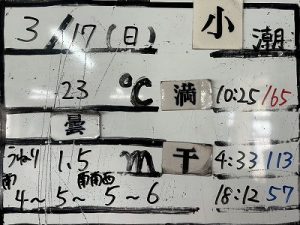 3/17(日) 小潮
23 ℃ 満 10:25/165
曇
うねり 1.5 m 干 4:33 113
南 南南西 18:12 57
4～5～5～6